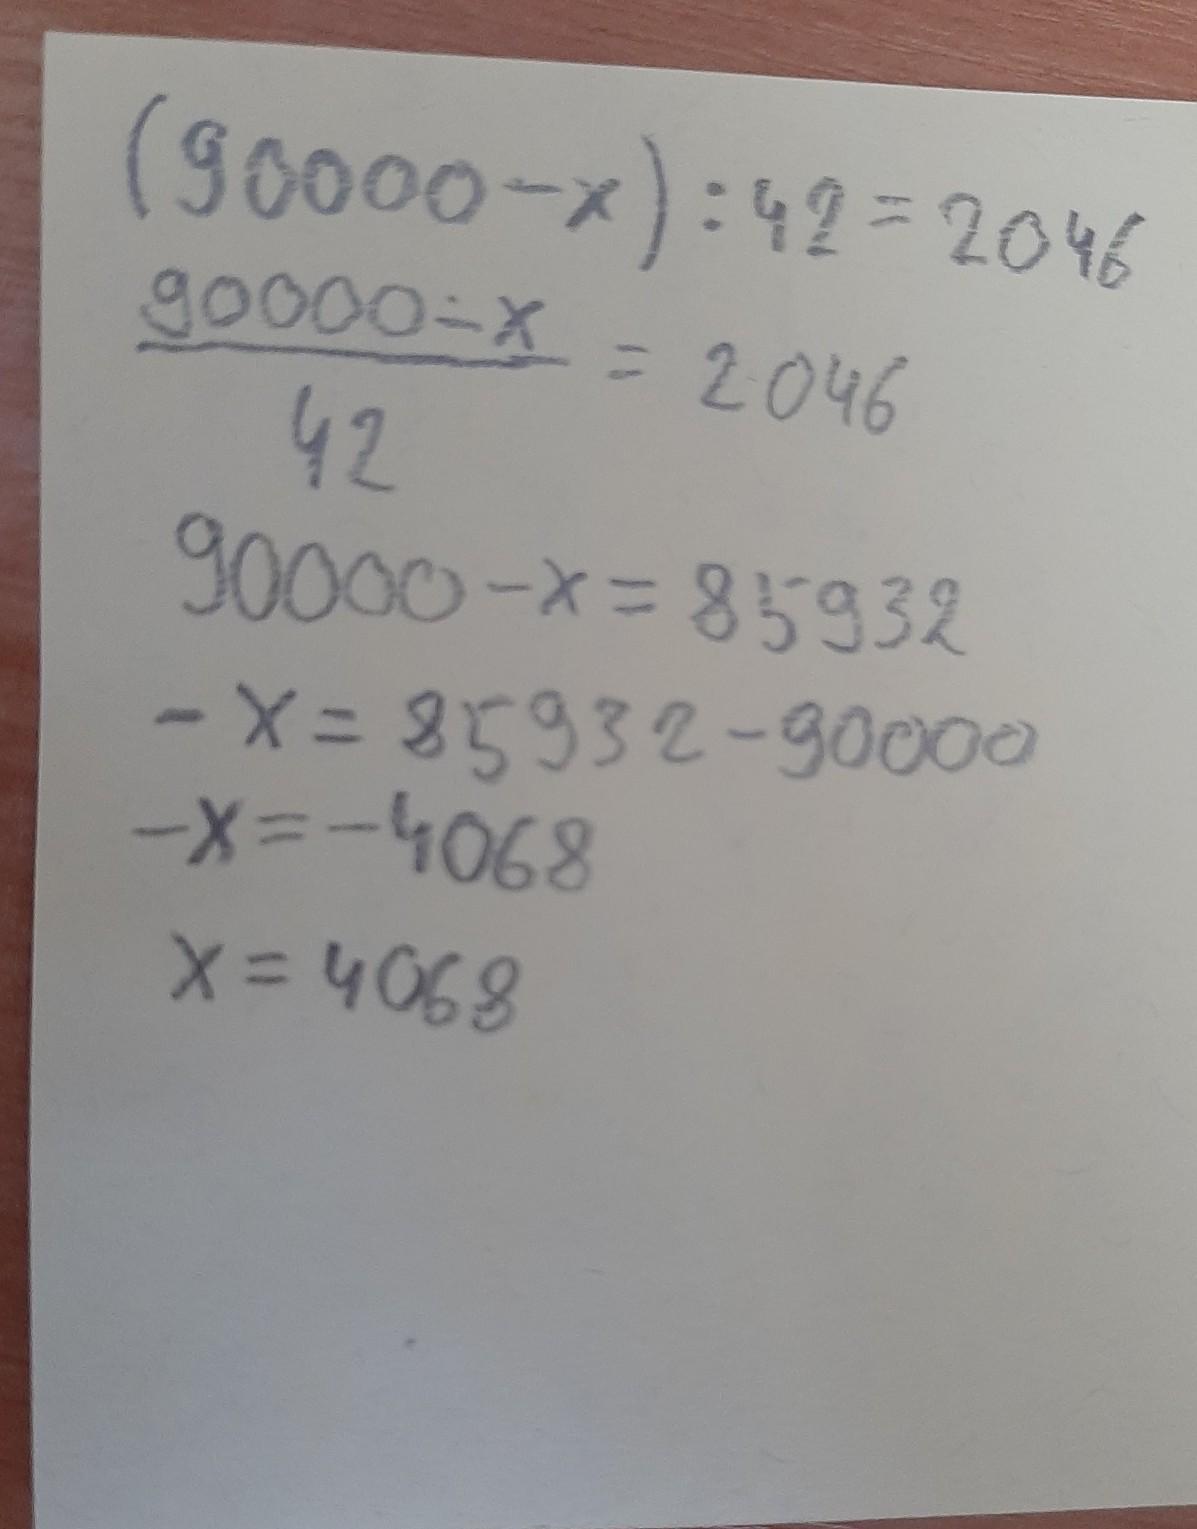 (90000-x):42=2046
90000-x
42
= 2046
90000-x=85932
-x=85932-90000
-x=-4068
x=4068